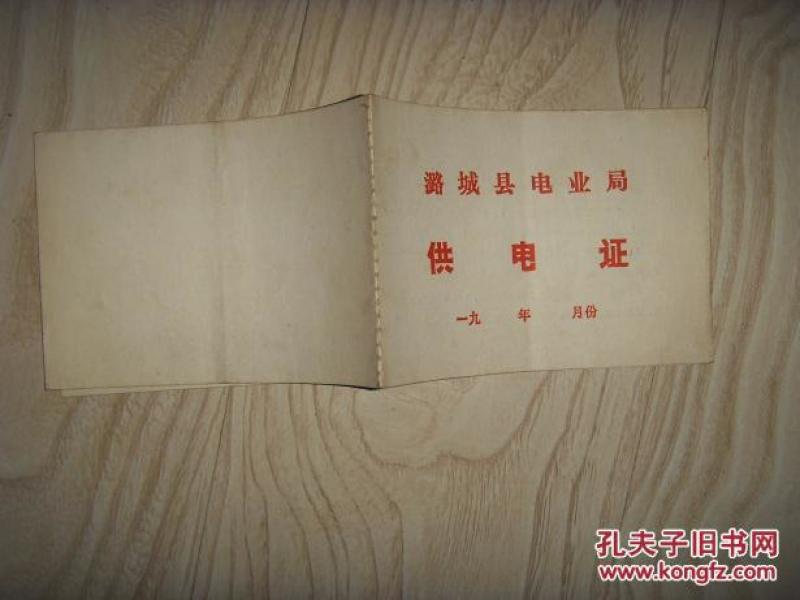 潞城县电业局
供电证
一九 年 月份
孔夫子旧书网
www.kongfz.com